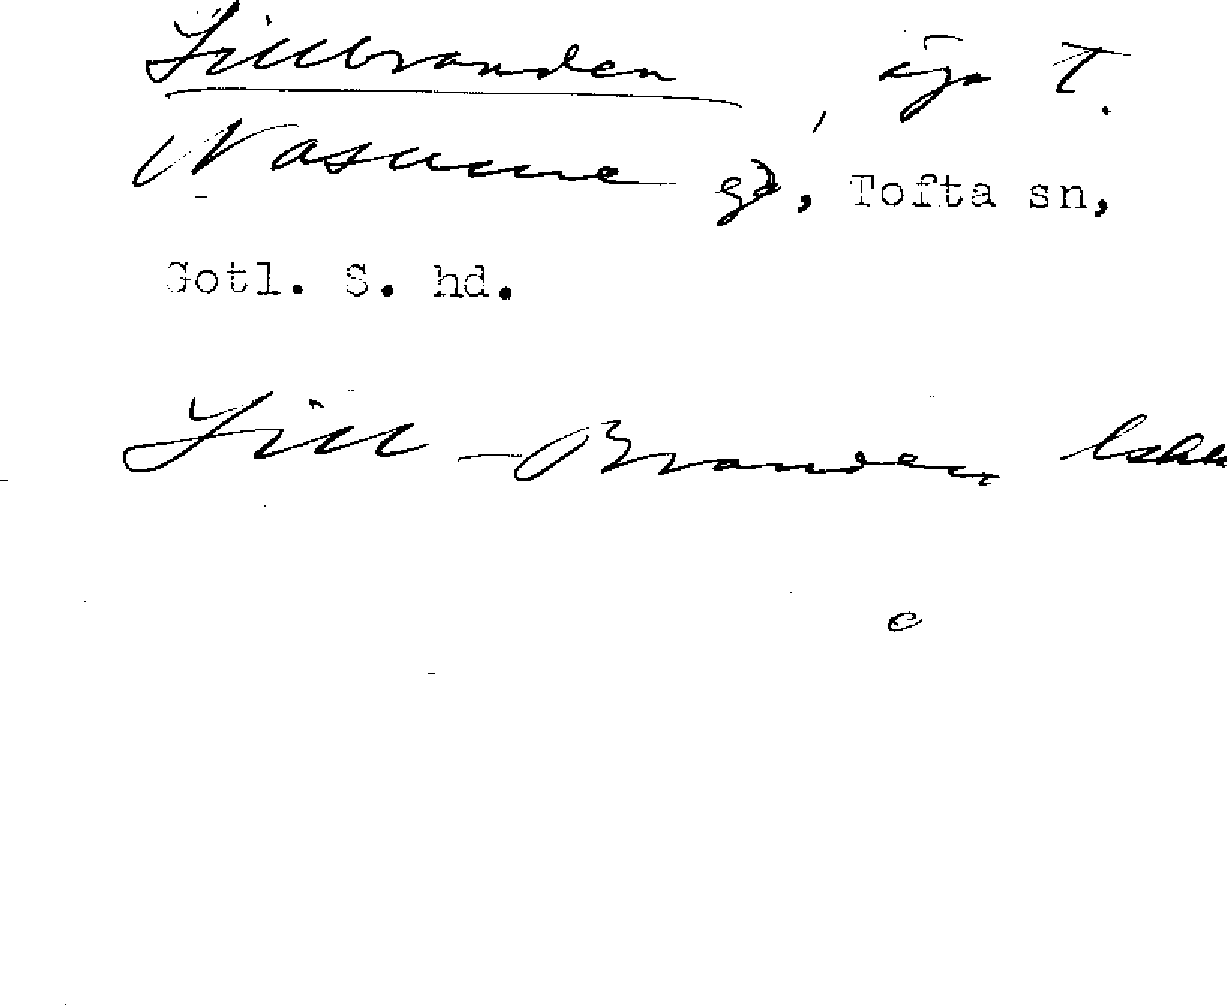 Lillbranden, äga T.
Nasume gd, Tofta sn,
Gotl. S. hd.
Lill-Branden